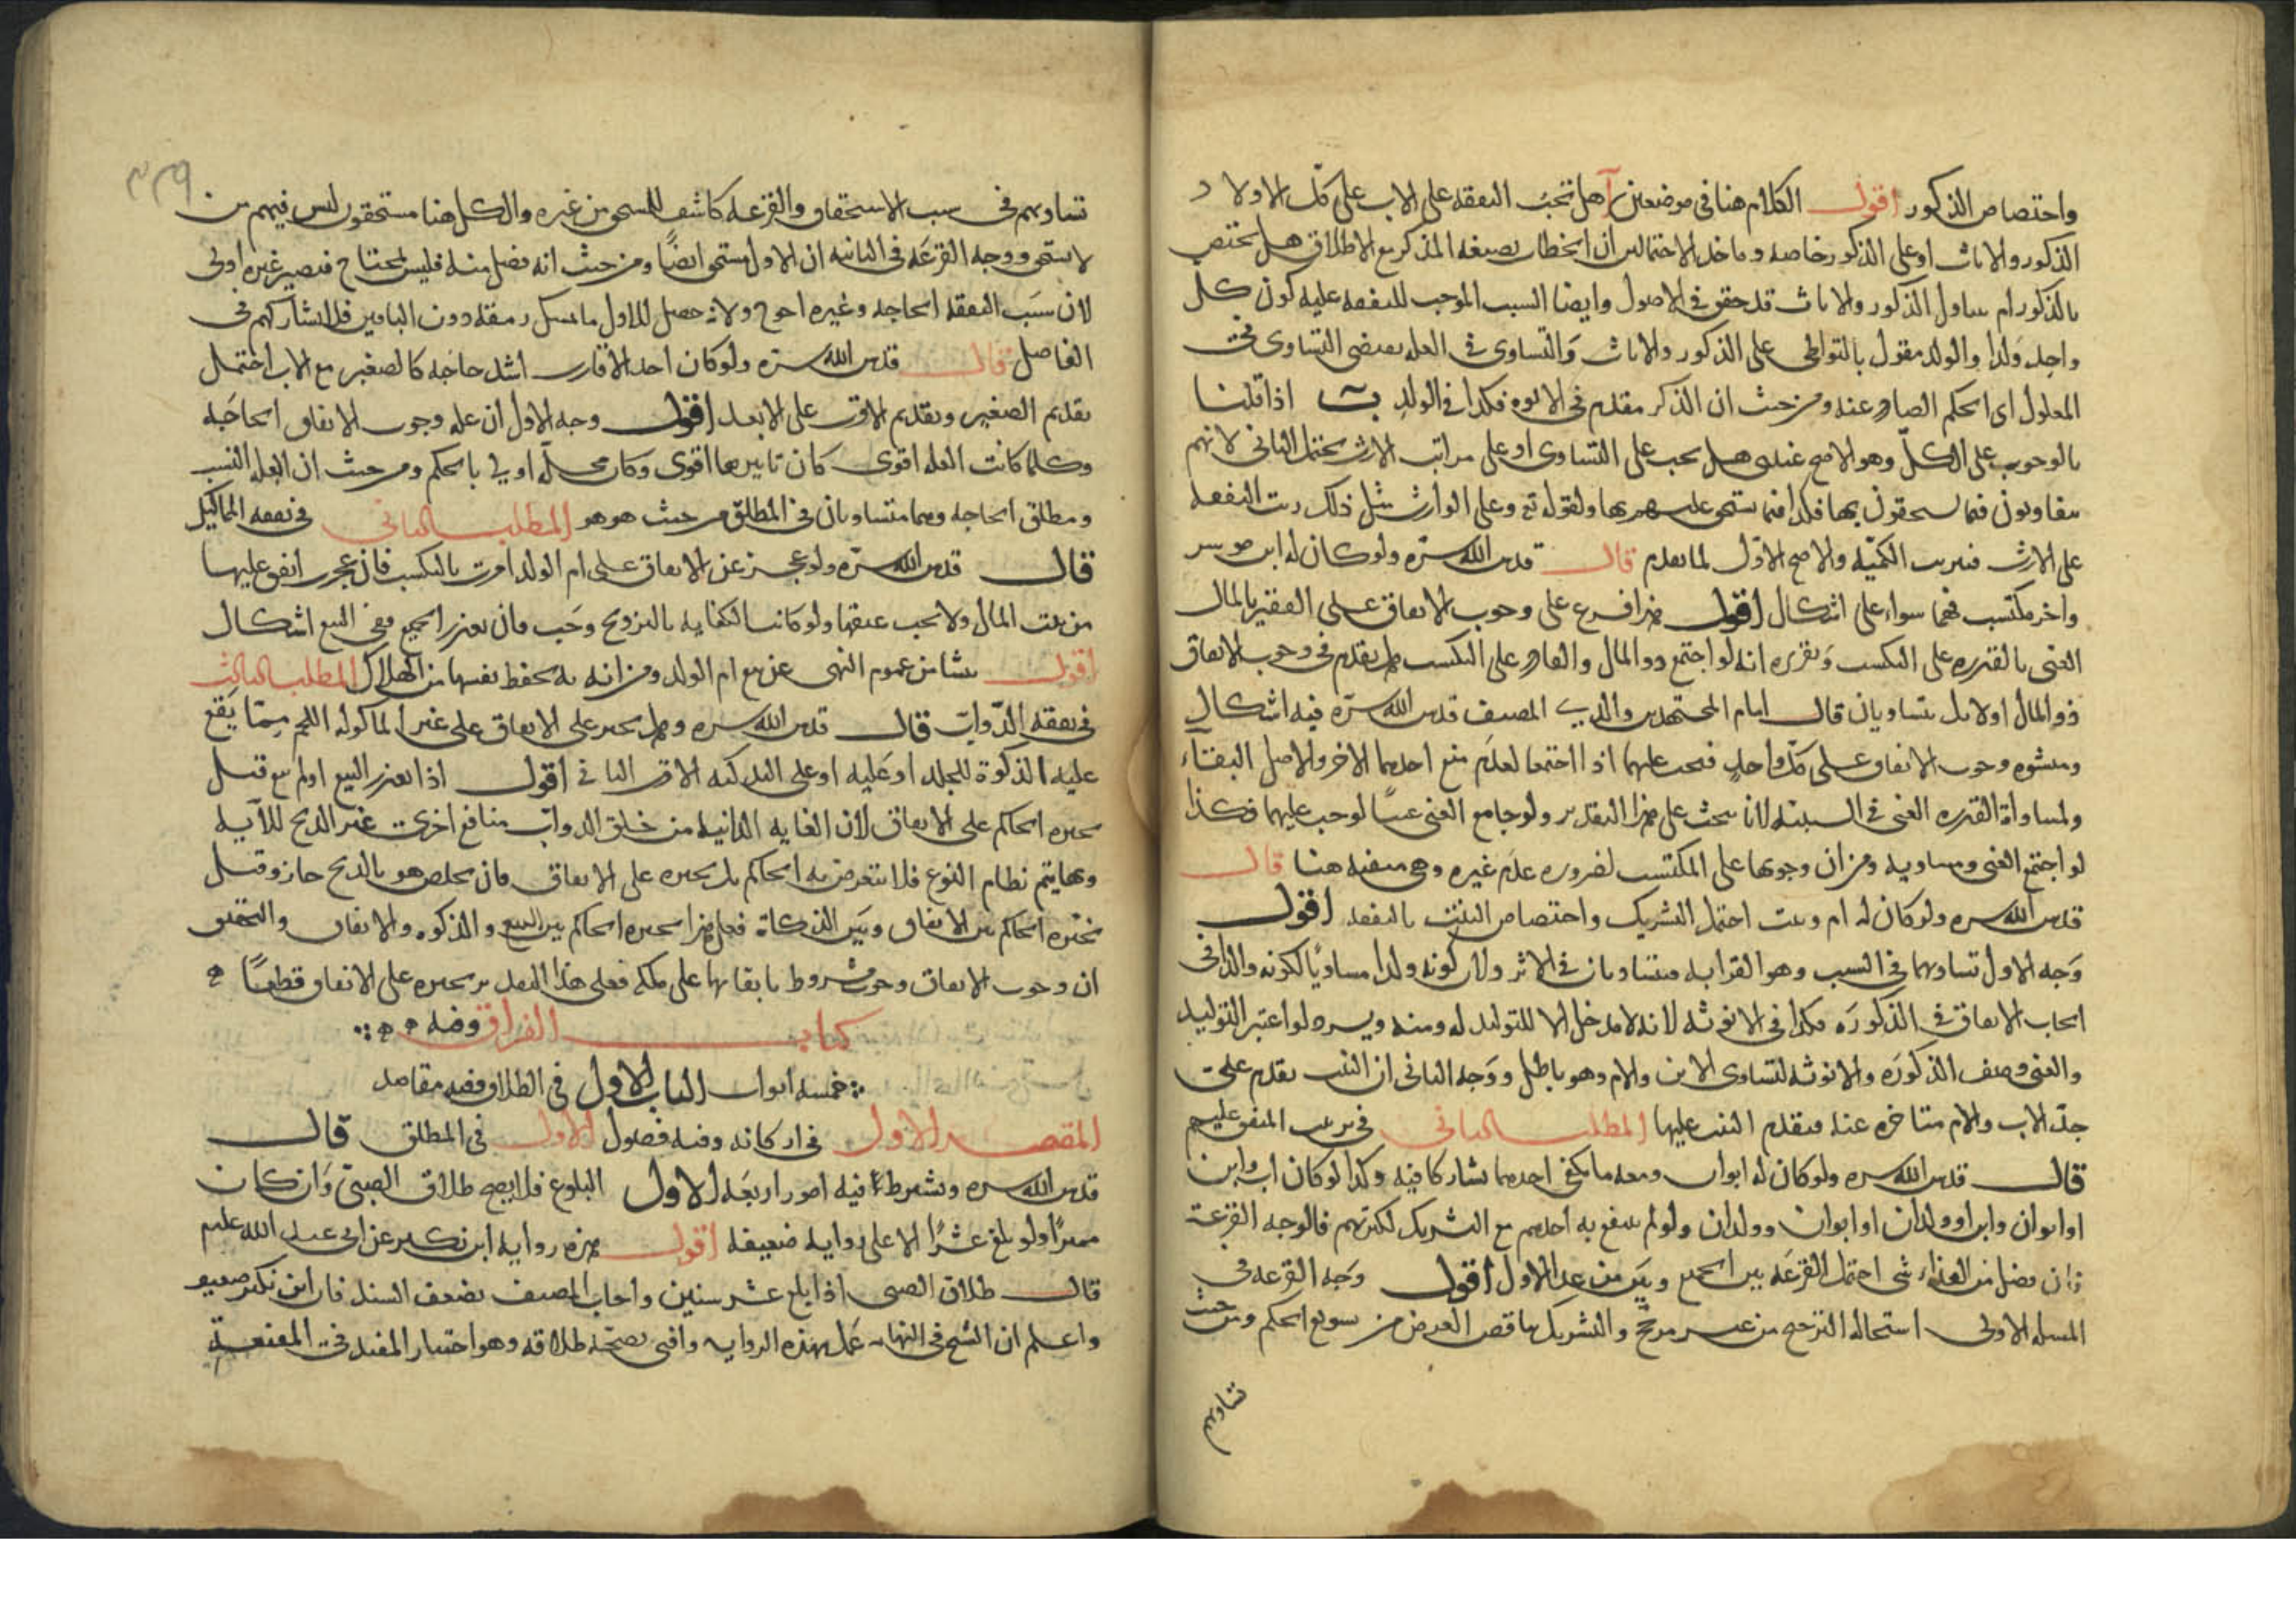 واختصاص الذكور اقول الكلام هنا في موضعين آ هل تجب النفقه على الاب على كل الاولاد
الذكور والاناث او على الذكور خاصه وماخذ الاحتمالين ان الخطاب بصيغه المذكر مع الاطلاق هل يختص
بالذكور ام يتناول الذكور والاناث قد حقق في الاصول وايضا السبب الموجب للنفقه عليه كون كل
واحد ولدا والولد مقول بالتواطي على الذكور والاناث والتساوى في العله يقتضى التساوى في
المعلول اى الحكم الصادر عنه ومن حيث ان الذكر مقدم في الابوه فكذا في الولد ب اذا قلنا
بالوجوب على الكل وهو الاصح عندى هل يجب على التساوى او على مراتب الارث يحتمل الثانى لانهم
يتفاوتون فيما يستحقون بها فكذا فيما يستحق عليهم بها ولقوله تع وعلى الوارث مثل ذلك رتب النفقه
على الارث فترتب الكميه والاصح الاول لما تقدم قال قدس الله سره ولو كان له ابن موسر
واخر مكتسب فهما سواء على اشكال اقول هذا فرع على وجوب الانفاق على الفقير بالمال
الغنى بالقدره على التكسب وتقريره انه لو اجتمع ذو المال والقادر على التكسب هل يقدم في وجوب الانفاق
ذو المال اولا بل يتساويان قال امام المجتهدين والدي المصنف قدس الله سره فيه اشكال
ومنشوه وجوب الانفاق على كل واحد فيجب عليهما اذا اجتمعا لعدم منع احدهما الاخر والاصل البقاء
ولمساواة القدره الغنى في السببيه لانا نبحث على هذا التقدير ولو جامع الغنى غنيا لوجب عليهما فكذا
لو اجتمع الغنى ومساويه ومن ان وجوبها على المكتسب لضروره عدم غيره وهى منفيه هنا قال
قدس الله سره ولو كان له ام وبنت احتمل التشريك واختصاص البنت بالنفقه اقول
وجه الاول تساويهما في السبب وهو القرابه فيتساويان في الاثر ولان كونه ولدا مساويا لكونه والدا في
ايجاب الانفاق في الذكوره فكذا في الانوثه لانه لا مدخل الا للتوليد له ومنه ويرد لو اعتبر التوليد
والغى وصف الذكوره والانوثه لتساوى الابن والام وهو باطل ووجه الثانى ان البنت تقدم على
جد الاب والام متاخره عنه فيقدم البنت عليها المطلب الثانى في ترتيب المنفق عليهم
قال قدس الله سره ولو كان له ابوان ومعه ما يكفى احدهما تشاركا فيه وكذا لو كان اب وابن
او ابوان وابن او ولدان او ابوان وولدان ولو لم ينتفع به احدهم مع التشريك لكثرتهم فالوجه القرعة
فان فضل من الغذاء شى احتمل القرعه بين الجميع وبين من عدا الاول اقول وجه القرعه في
المسله الاولى استحاله الترجيح من غير مرجح والتشريك يناقض الغرض من تسويغ الحكم ومن حيث
تساويهم
٣٣٩
تساويهم في سبب الاستحقاق والقرعه كاشفه للمستحق من غيره والكل هنا مستحقون ليس فيهم من
لا يستحق ووجه القرعه في الثانيه ان الاول مستحق ايضًا ومن حيث انه فضل منه فليس بمحتاج فيصير غيره اولى
لان سبب النفقه الحاجه وغيره احوج ولانه حصل للاول ما يمسك رمقه دون الباقين فلا يشاركهم في
الفاضل قال قدس الله سره ولو كان احد الاقارب اشد حاجه كالصغير مع الاب احتمل
تقديم الصغير وتقديم الاقرب على الابعد اقول وجه الاول ان عله وجوب الانفاق الحاجه
وكلما كانت العله اقوى كان تاثيرها اقوى وكان محله اولى بالحكم ومن حيث ان العله النسب
ومطلق الحاجه وهما متساويان في المطلق من حيث هو هو المطلب الثانى في نفقه المماليك
قال قدس الله سره ولو عجز عن الانفاق على ام الولد امرت بالتكسب فان عجزت انفق عليها
من بيت المال ولا يجب عتقها ولو كانت الكفايه بالتزويج وجب فان تعذر الجميع ففى البيع اشكال
اقول ينشا من عموم النهى عن بيع ام الولد ومن انه به يحفظ نفسها من الهلاك المطلب الثالث
في نفقه الدواب قال قدس الله سره وهل يجبر على الانفاق على غير الماكوله اللحم مما يقع
عليه الذكوة للجلد او عليه او على التذكيه الاقرب الثانى اقول اذا تعذر البيع او لم يبع قيل
يجبره الحاكم على الانفاق لان الغايه الذاتيه من خلق الدواب منافع اخرى غير الذبح للآيه
وبها يتم نظام النوع فلا يتعرض به الحاكم بل يجبره على الانفاق فان تخلص هو بالذبح جاز وقيل
يخيره الحاكم بين الانفاق وبين الذكاة فعلى هذا يجبره الحاكم بين البيع والذكوه والانفاق والتحقيق
ان وجوب الانفاق وجوب مشروط بابقائها على ملكه فعلى هذا التقدير يجبره على الانفاق قطعًا
كتاب الفراق وفيه
خمسه ابواب الباب الاول في الطلاق وفيه مقاصد
المقصد الاول في اركانه وفيه فصول الاول في المطلق قال
قدس الله سره ويشترط فيه امور اربعه الاول البلوغ فلا يصح طلاق الصبى وان كان
مميزًا ولو بلغ عشرًا الا على روايه ضعيفه اقول هذه روايه ابن بكير عن ابى عبد الله عليه
قال طلاق الصبى اذا بلغ عشر سنين واجاب المصنف بضعف السند فان ابن بكير ضعيف
واعلم ان الشيخ في النهايه عمل بهذه الروايه وافتى بصحة طلاقه وهو اختيار المفيد في المقنعة